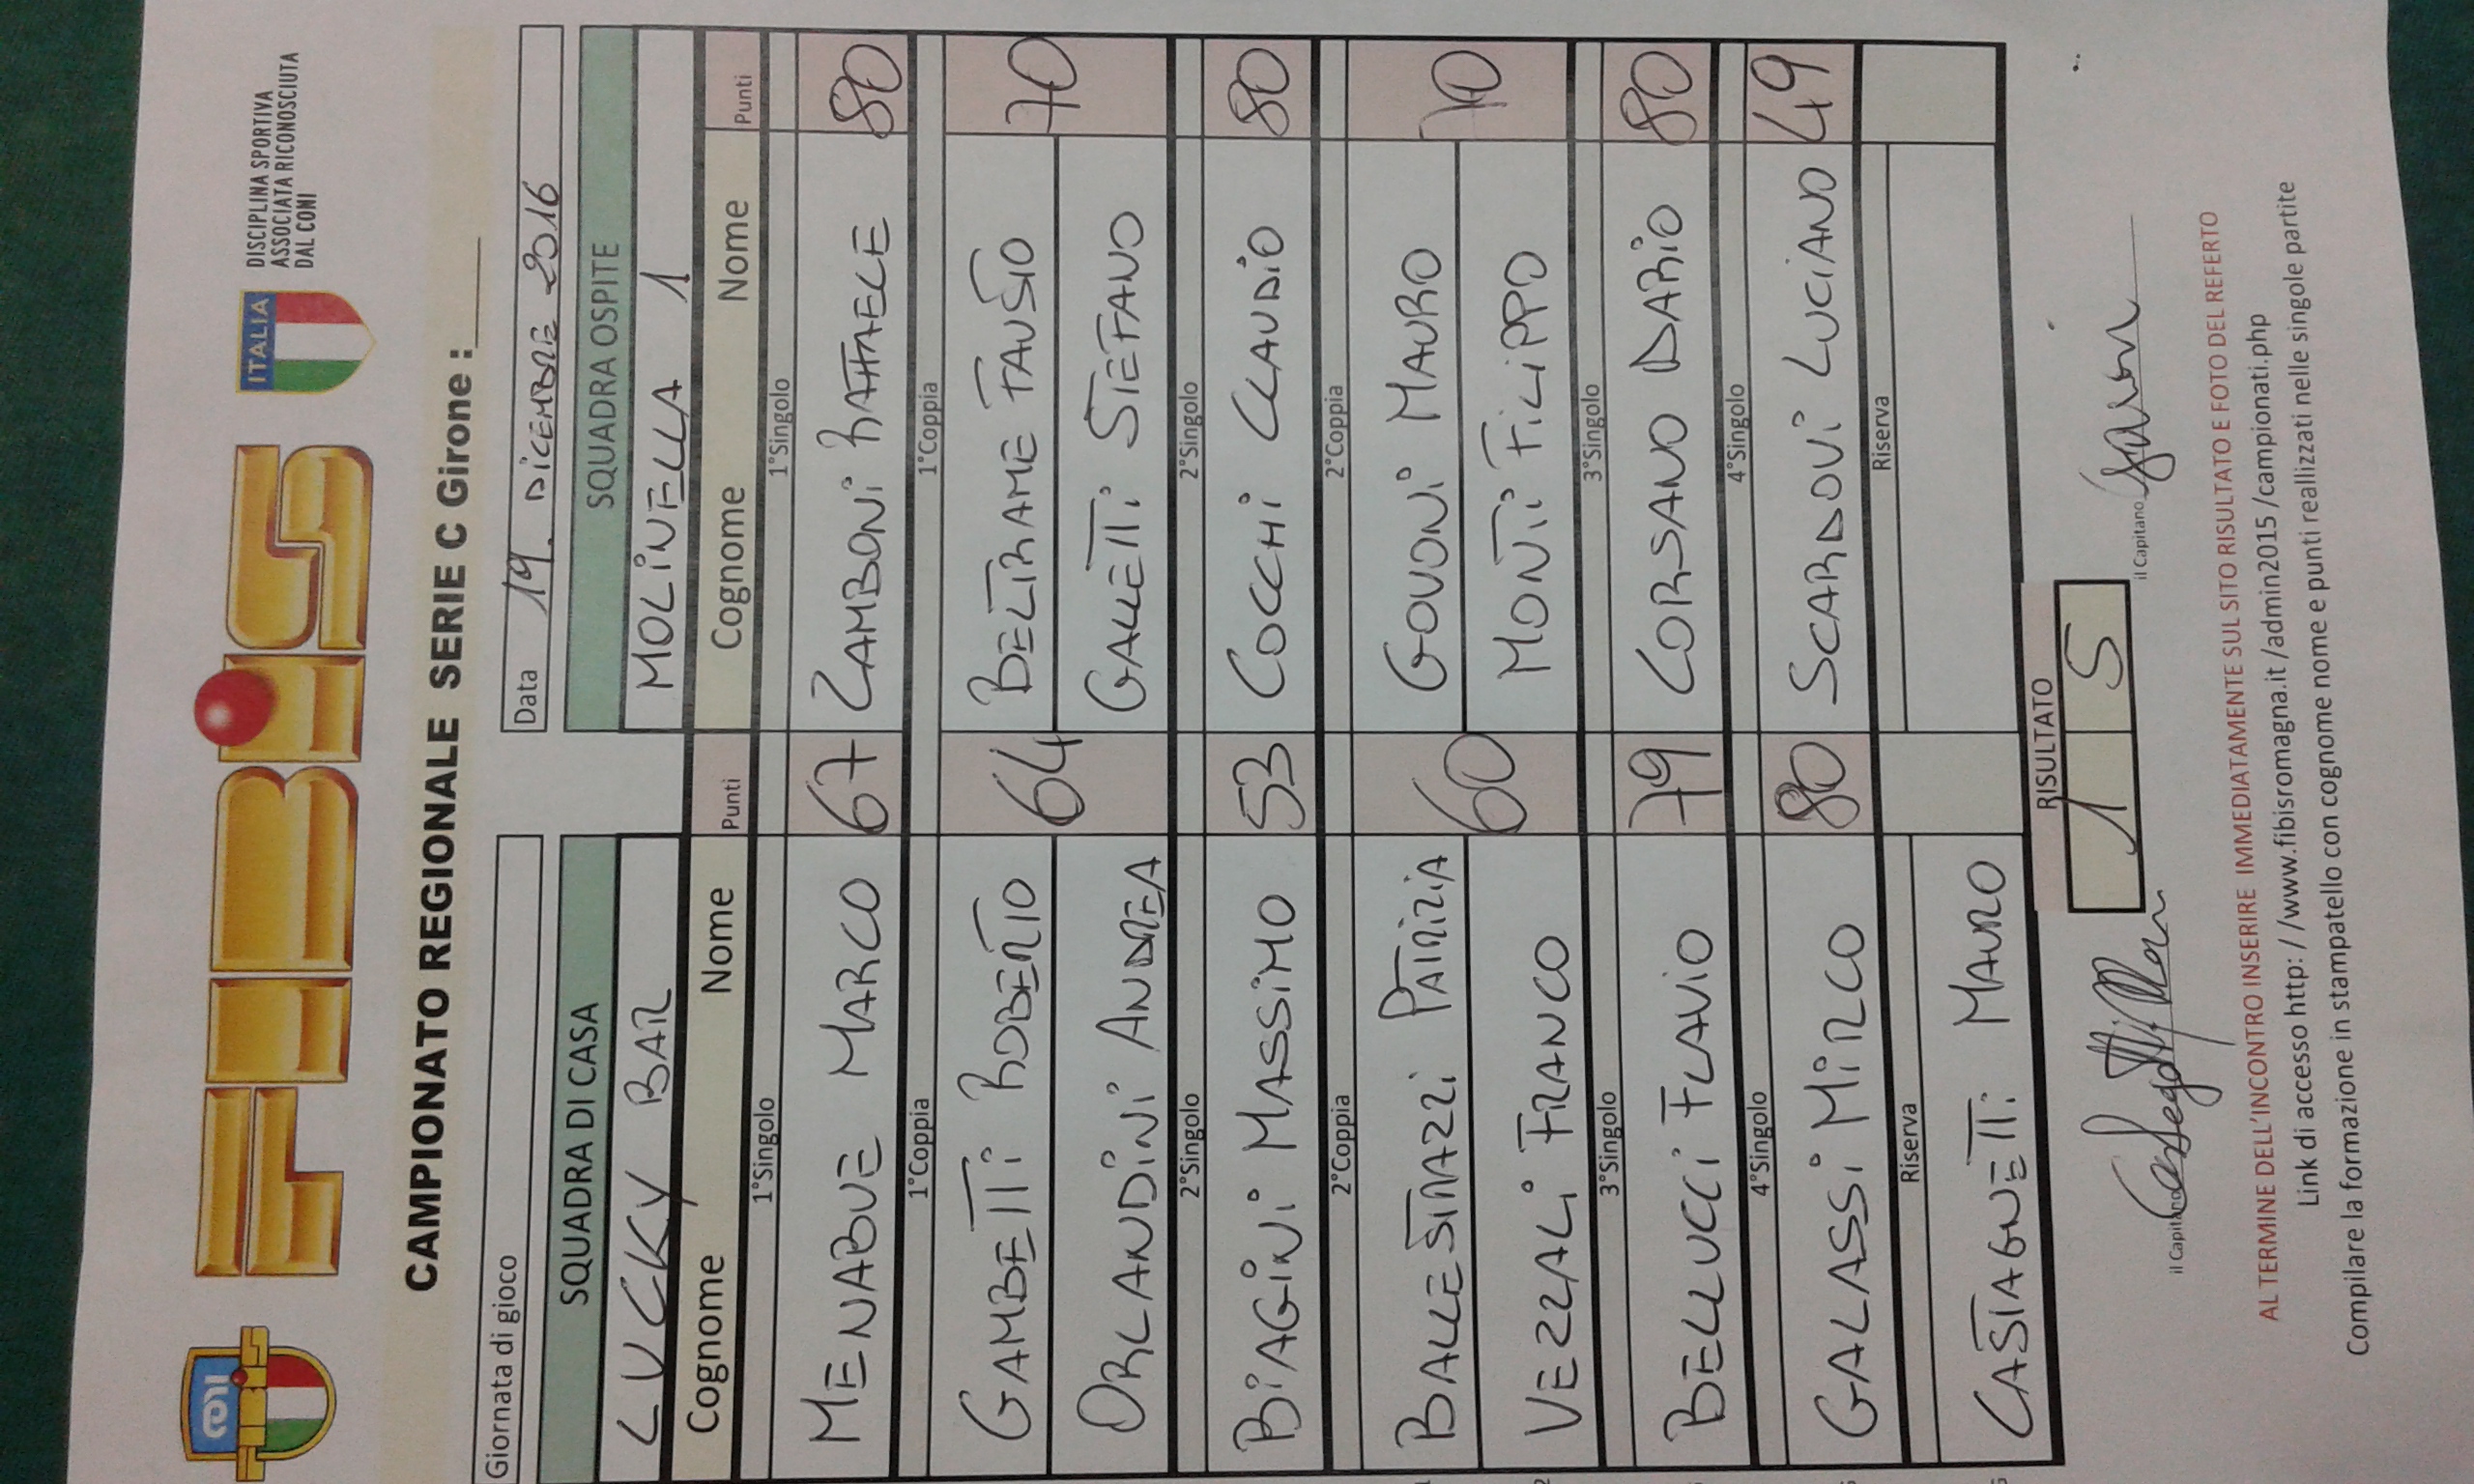 CONI FIBiS
FIBiS
ITALIA
DISCIPLINA SPORTIVA
ASSOCIATA RICONOSCIUTA
DAL CONI
CAMPIONATO REGIONALE SERIE C Girone :____
Giornata di gioco
Data 19. DiCEMBRE 2016
SQUADRA DI CASA SQUADRA OSPITE
LUCKY BAR MOLiNELLA 1
Cognome Nome Punti Cognome Nome Punti
1°Singolo 1°Singolo
MENABUE MARCO 67 ZAMBONi RAFFAELE 80
1°Coppia 1°Coppia
GAMBETTi ROBERTO 64 BELTRAME FAUSTO 70
ORLANDiNi ANDREA GALLETTi STEFANO
2°Singolo 2°Singolo
BiAGiNi MASSiMO 53 COCCHi CLAUDiO 80
2°Coppia 2°Coppia
BALLESTRAZZi PATRiZiA 60 GOVONi MAURO 70
VEZZALi FRANCO MONTi FiLiPPO
3°Singolo 3°Singolo
BELLUCCi FLAViO 79 CORSANO DARiO 80
4°Singolo 4°Singolo
GALASSi MiRCO 80 SCARDOVi LUCiANO 49
Riserva Riserva
CASTAGNETTi MAURO
RISULTATO
1 5
il Capitano il Capitano
AL TERMINE DELL'INCONTRO INSERIRE IMMEDIATAMENTE SUL SITO RISULTATO E FOTO DEL REFERTO
Link di accesso http: / /www.fibisromagna.it /admin2015 /campionati.php
Compilare la formazione in stampatello con cognome nome e punti reallizzati nelle singole partite